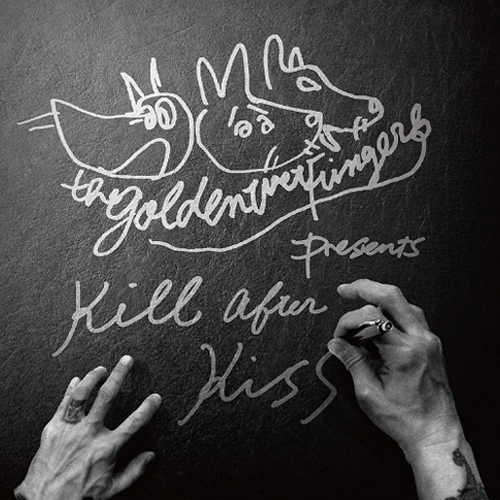 the goldenwetfingers
presents
Kill After
Kiss